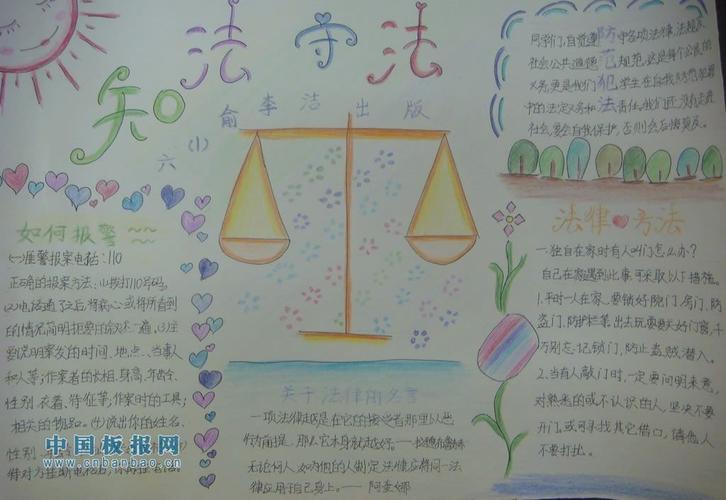 知法守法
六(1) 俞李洁出版
同学们,自觉遵守各项法律、法规及
社会公共道德规范,这是每个公民的
义务,更是我们学生在自我
中的法定义务和责任。我们还没有走进
社会,要会自我保护,否则会后悔莫及。
防范犯法
如何报警
报案电话:110
正确的报案方法:(1)拨打110号码。
(2)电话通了之后,将
的情况简明扼要的叙述一遍。(3)
要说明案发的时间、地点、当事人
和人等;作案者的长相、身高、年龄、
性别、衣着、特征等;作案时的工具;
相关的物品。(4)说出你的姓名、
性别、
中国板报网
www.cnbanbao.cn
关于法律的名言
一项法律越是在它的接受者那里以
为前提,那么它本身就越好。——
无论何人,如为他人制定法律,应将同一法
律应用于自己身上。—— 阿奎那
法律 方法
一.独自在家时有人叫门怎么办?
自己在家遇到此事,可采取以下措施。
1.平时一人在家,要锁好院门、房门、防
盗门、防护栏等。出去玩要关好门窗,千
万别忘记锁门,防止盗贼潜入。
2.当有人敲门时,一定要问明来意,
对熟悉的或不认识的人,坚决不要
开门,或可寻找其它借口,请他人
不要打扰。